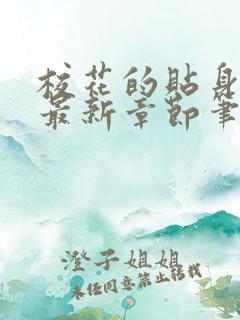 校花的贴身
最新章节笔
澄子姐姐
未经同意禁止转载